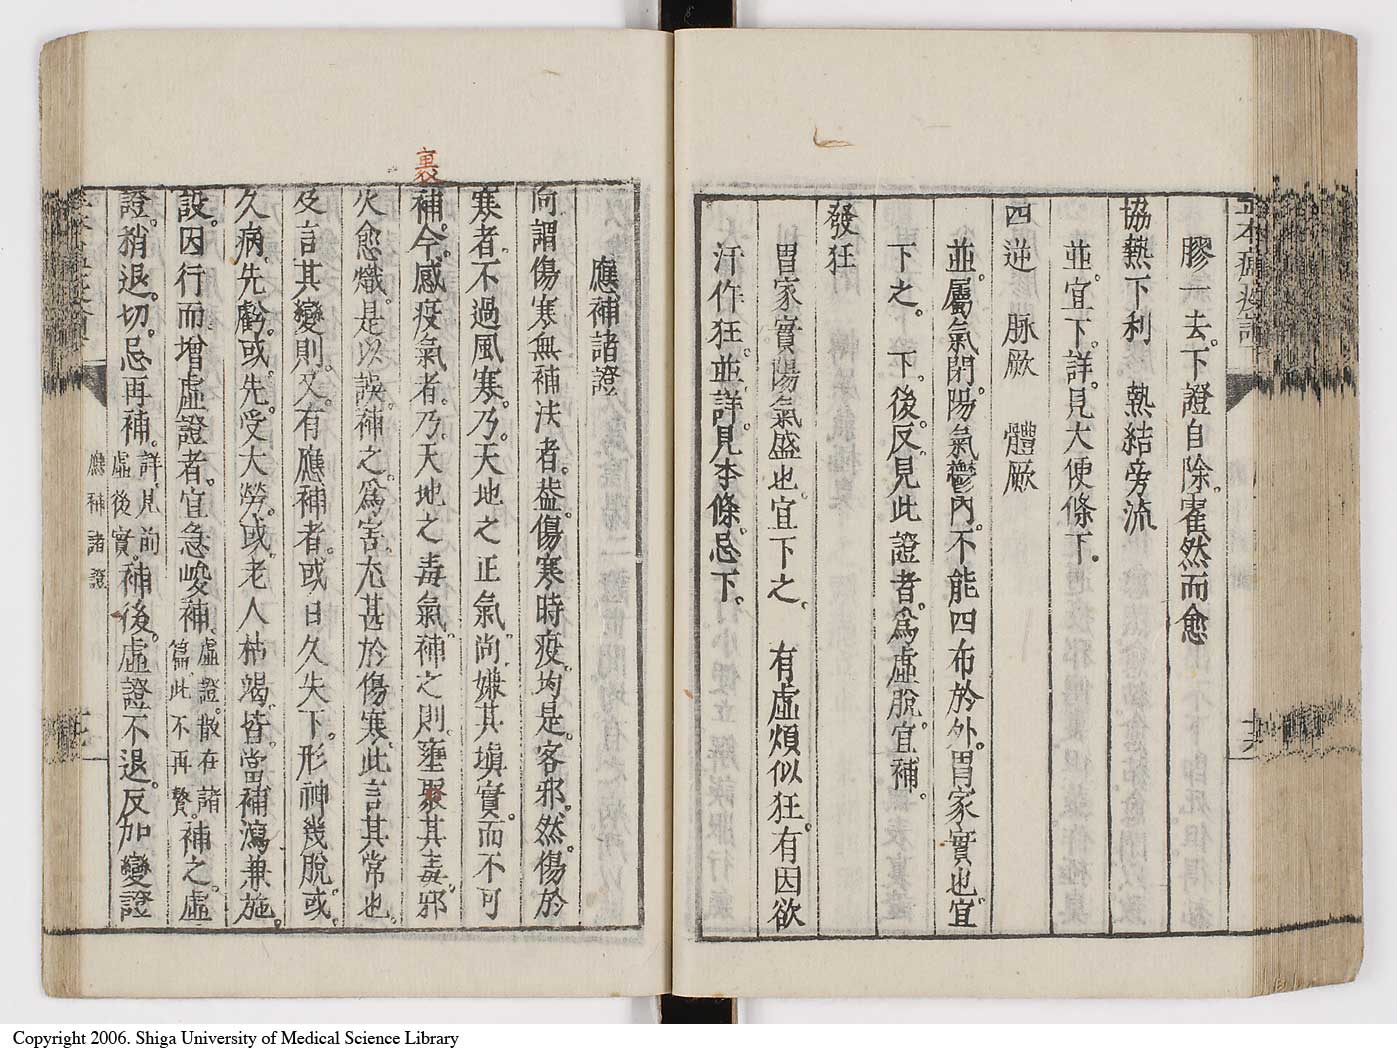 膠一去。下證自除。霍然而愈
協熱下利　熱結旁流
並。宜下。詳。見大便條下。
四逆　脉厥　體厥
並。屬氣閉。陽氣鬱內。不能四布於外。胃家實也。宜
下之。　下。後。反。見此證者。爲虛脫。宜補。
發狂
胃家實。陽氣盛也。宜下之。　有虛煩似狂。有因欲
汗作狂。並。詳。見本條。忌下。
應補諸證
向謂傷寒無補法者。葢傷寒時疫。均是客邪。然。傷於
寒者。不過風寒。乃。天地之正氣。尚嫌其塡實。而不可
補。今。感疫氣者。乃。天地之毒氣。補之。則。壅聚其毒。邪
裏
火愈熾。是以誤。補之。爲害。尤甚於傷寒。此言其常也。
及言其變。則。又。有應補者。或日久失下。形神幾脫。或。
久病。先虧。或先。受大勞。或。老人枯竭。皆。當補瀉兼施。
設。因行而增虛證者。宜急峻補。虛證。散在諸
篇。此不再贅。
補之。虛
證。稍退。切。忌再補。詳見前
虛後實。
補後。虛證不退。反加變證
應補諸證
Copyright 2006. Shiga University of Medical Science Library